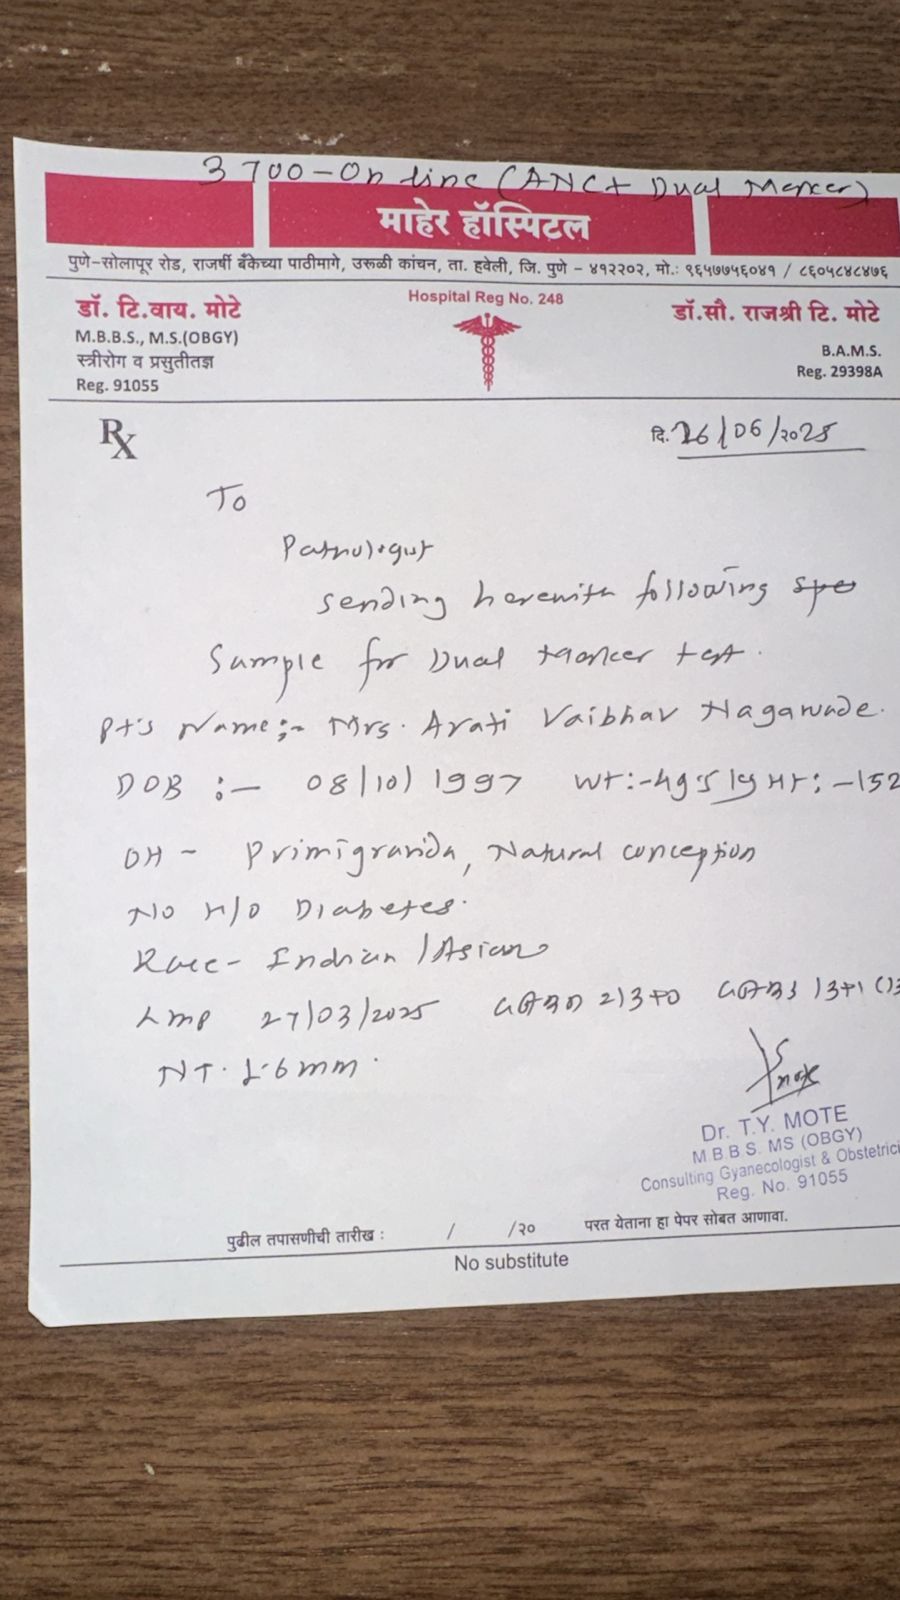 3700-Online (ANC+ Dual Marker)
माहेर हॉस्पिटल
पुणे-सोलापूर रोड, राजर्षी बँकेच्या पाठीमागे, उरूळी कांचन, ता. हवेली, जि. पुणे - ४१२२०२, मो.: ९६५७७५६०४१ / ८६०५८४८४७६
Hospital Reg No. 248
डॉ. टि.वाय. मोटे
M.B.B.S., M.S.(OBGY)
स्त्रीरोग व प्रसुतीतज्ञ
Reg. 91055
डॉ.सौ. राजश्री टि. मोटे
B.A.M.S.
Reg. 29398A
Rx
दि. 26/06/२०२५
To
Pathologist
sending herewith following spe
Sample for Dual Marker test.
Pt's Name:- Mrs. Arati Vaibhav Nagawade.
DOB :- 08/10/1997 Wt:-49.5 kg Ht:-152
OH - Primigravida, Natural conception
No H/O Diabetes.
Race- Indian/Asian
LMP 27/03/2025
NT. 1.6mm.
Dr. T.Y. MOTE
M.B.B.S. MS (OBGY)
Consulting Gyanecologist & Obstetrici
Reg. No. 91055
पुढील तपासणीची तारीख : / /२० परत येताना हा पेपर सोबत आणावा.
No substitute